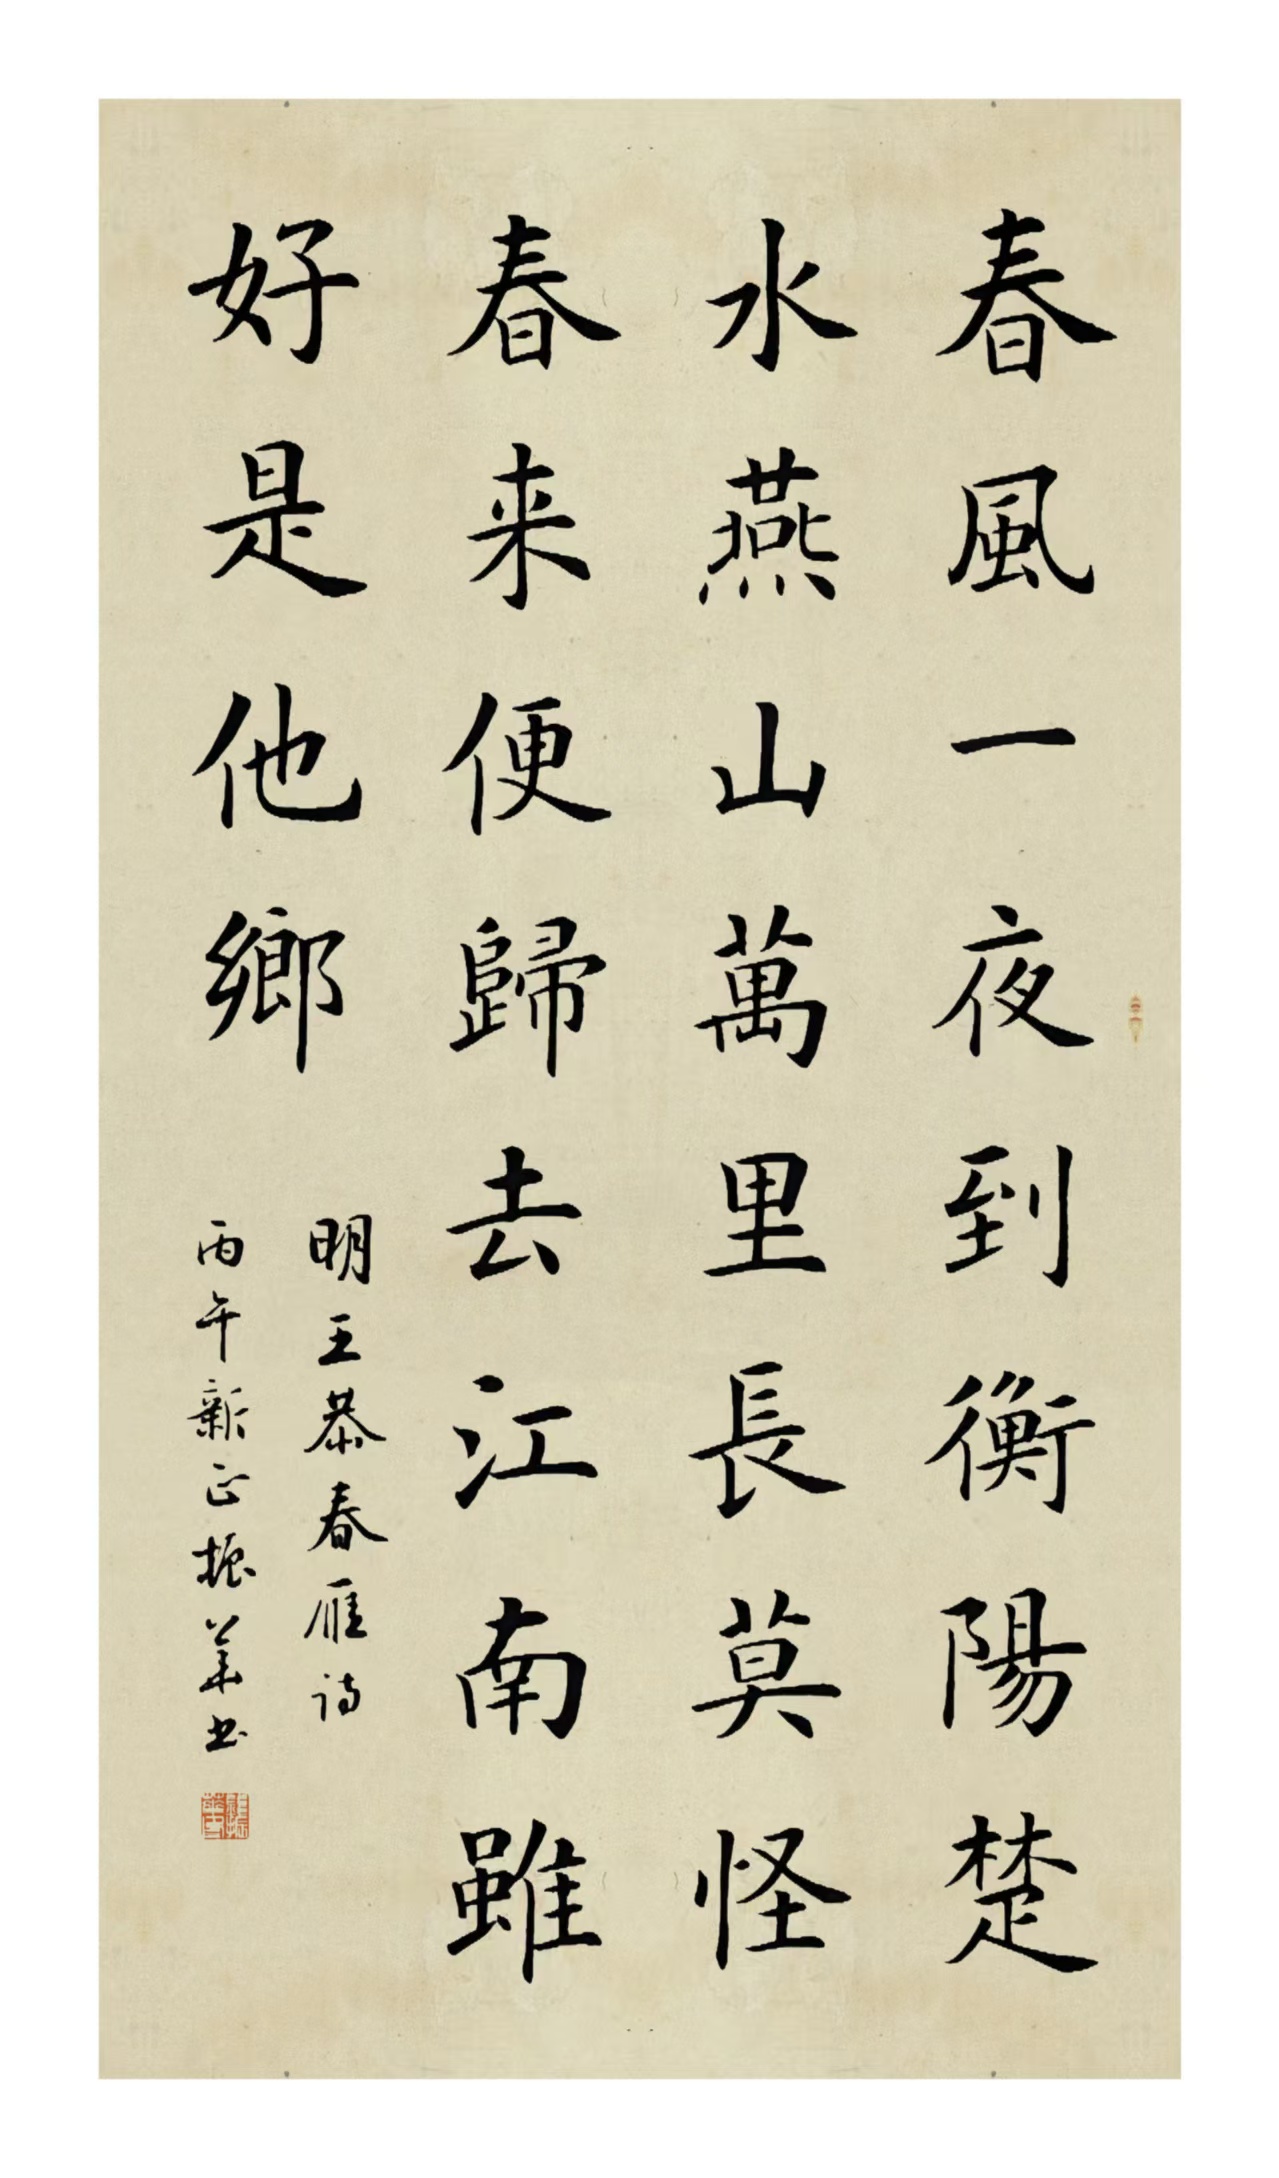 春風一夜到衡陽楚
水燕山萬里長莫怪
春来便歸去江南雖
好是他鄉
明王恭春雁诗
丙午新正振華书